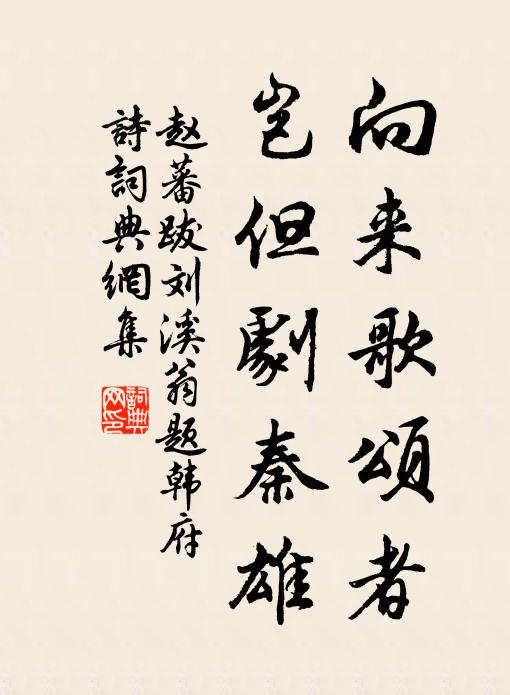 向来歌頌者
岂但劇秦雄
赵蕃跋刘溪翁题韩府
詩詞典網集
詞典网印